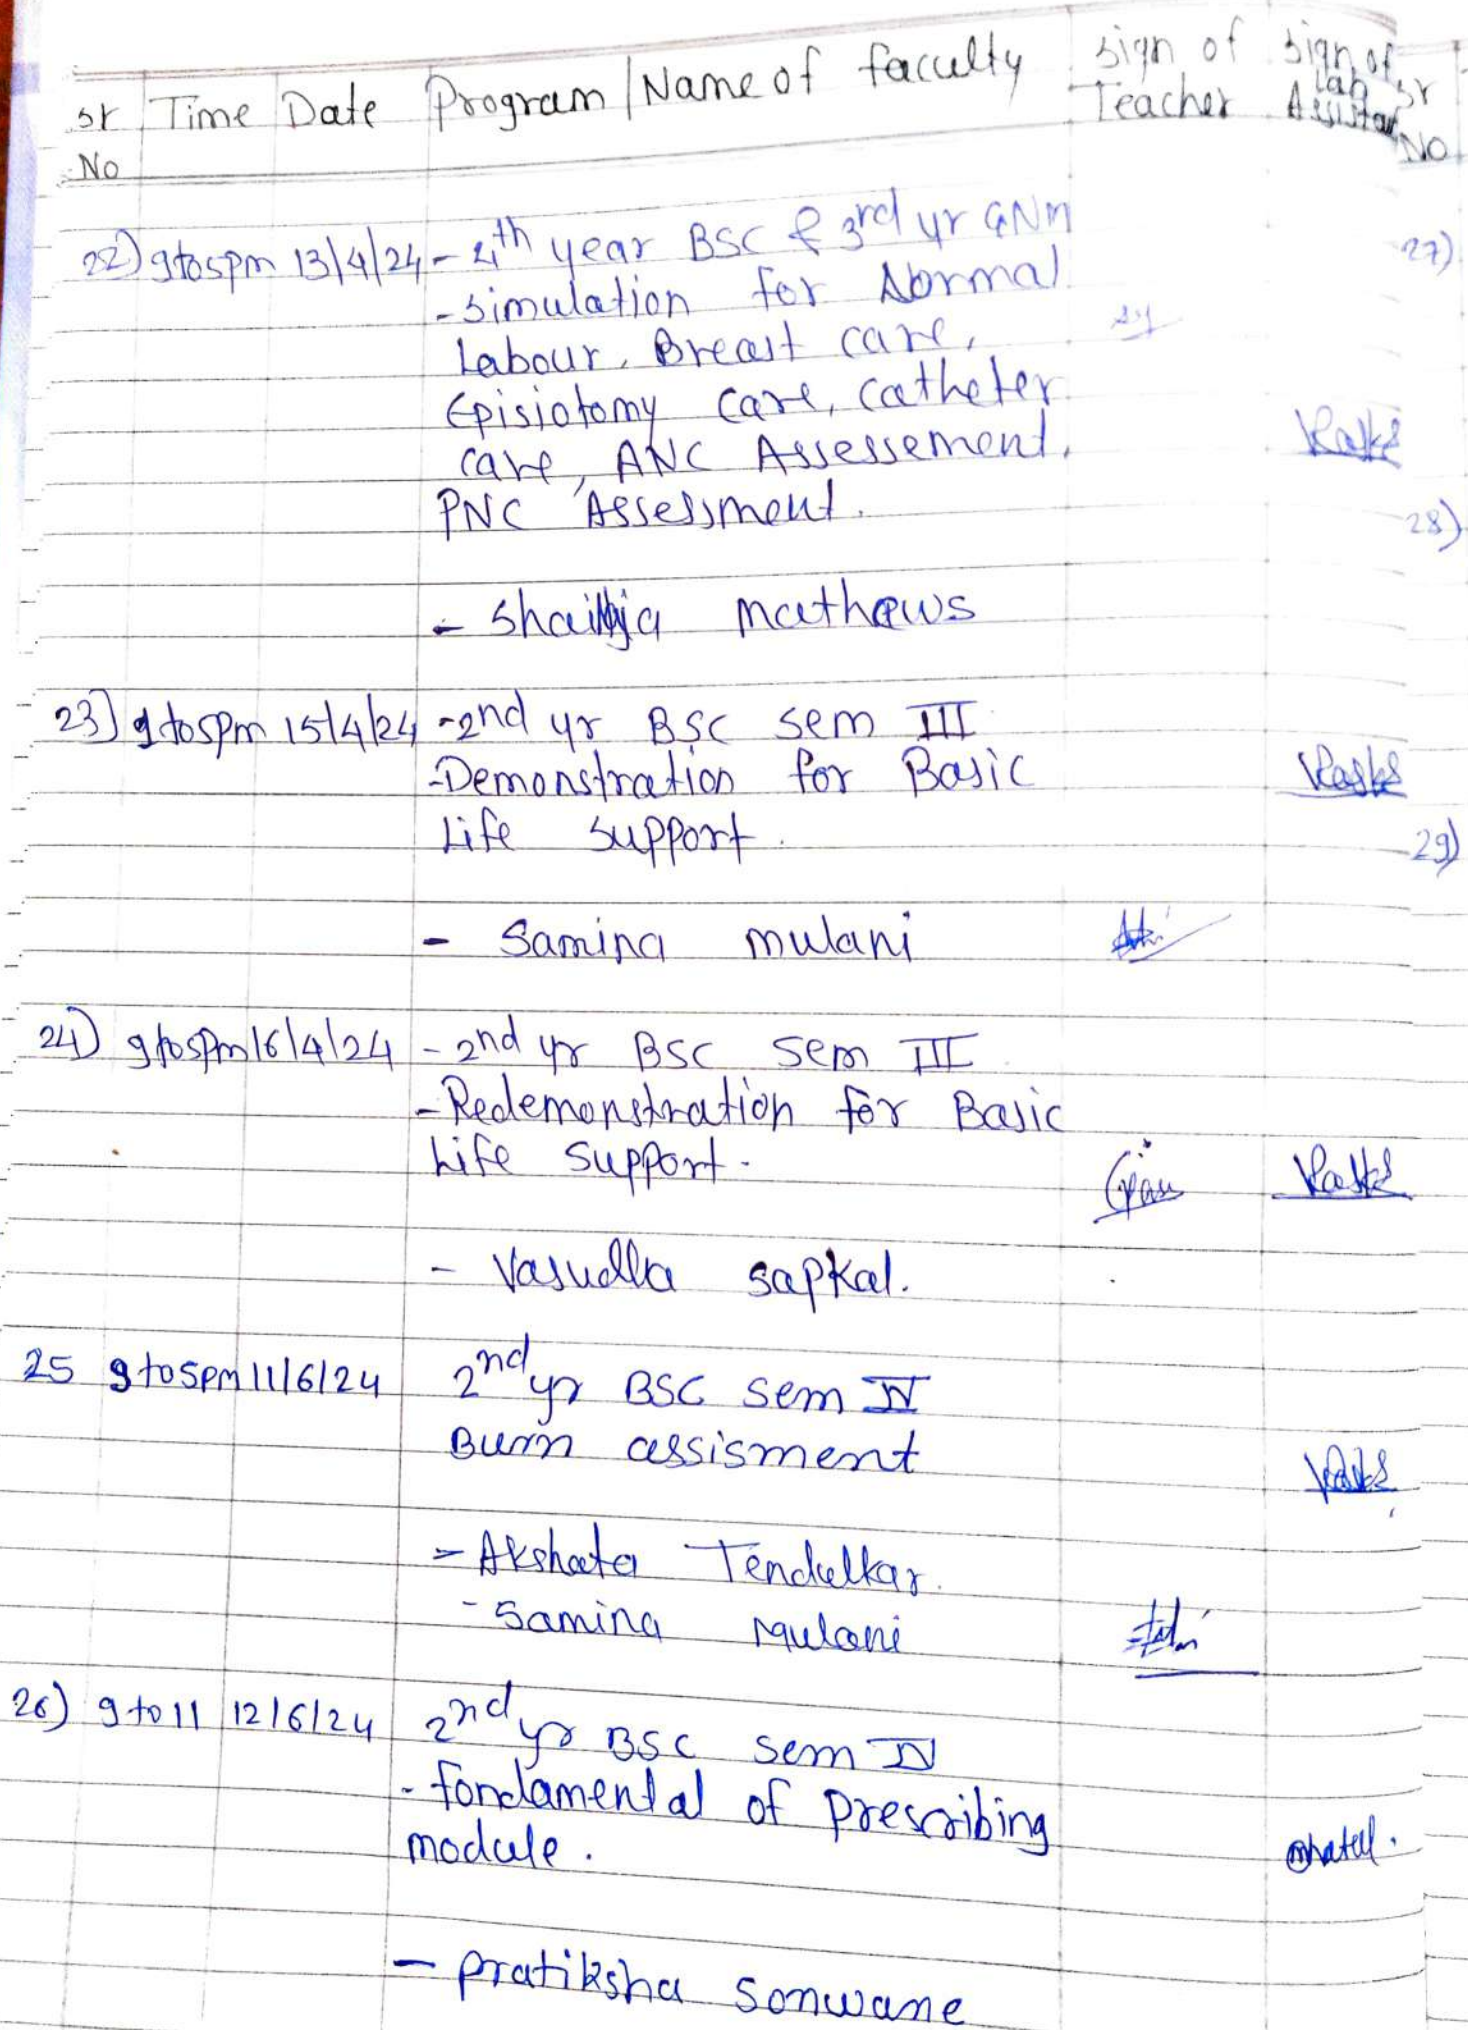 Sr No Time Date Program / Name of faculty Sign of Teacher Sign of Lab Assistan Sr No
22) 9to5pm 13/4/24 - 4th year BSC & 3rd yr GNM 27)
- Simulation for Normal
Labour, Breast care,
Episiotomy care, catheter
care, ANC Assessement,
PNC Assessment.
28)
- Mathews
23) 9to5pm 15/4/24 - 2nd yr BSC sem III
- Demonstration for Basic
Life support.
29)
- Samina mulani
24) 9to5pm 16/4/24 - 2nd yr BSC Sem III
- Redemonstration for Basic
Life Support.
- Vasudha sapkal.
25 9to5pm 11/6/24 2nd yr BSC sem IV
Burn assisment
- Akshata Tendulkar.
- Samina Mulani
26) 9to11 12/6/24 2nd yr BSC sem IV
- fondamental of prescribing
module.
- pratiksha sonwane